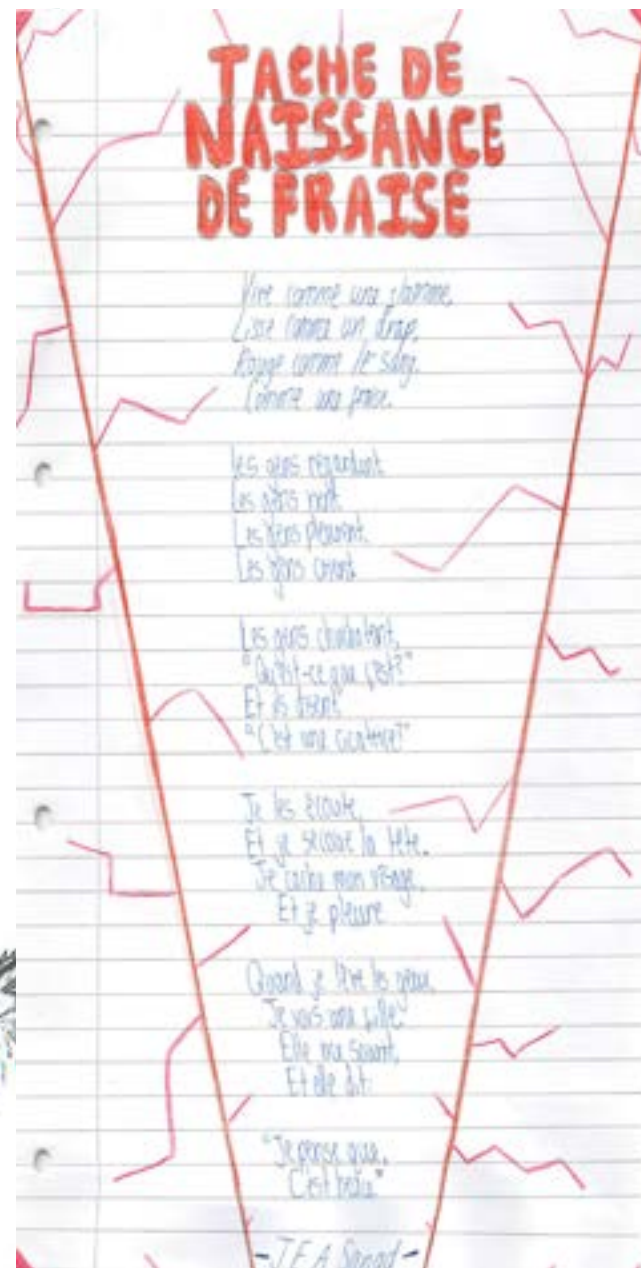 TACHE DE
NAISSANCE
DE FRAISE
Vive comme une flamme,
Lisse comme un drap,
Rouge comme le sang,
Comme une fraise.
Les gens regardent
Les gens
Les gens pleurent
Les gens crient
Les gens chuchotent,
"Qu'est-ce que c'est?"
Et ils disent
"C'est une cicatrice?"
Je les écoute,
Et je secoue la tête.
Je cache mon visage,
Et je pleure
Quand je lève les yeux,
Je vois une fille
Elle me sourit,
Et elle dit:
"Je pense que,
C'est beau"
- J.F.A Sanad -